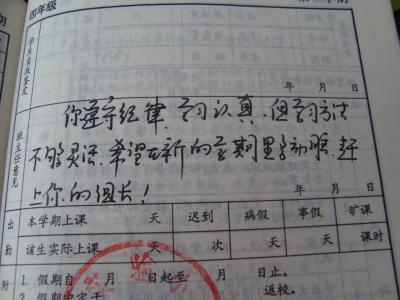 四年级
学生自我鉴定
年 月 日
班主任意见
你遵守纪律,学习认真,但学习方法
不够灵活,希望在新的学期里多动脑,赶
上你的组长!
年 月 日
出勤
本学期上课 天 迟到 病假 事假 旷课
该生实际上课 天 次 天 天 课时
附
1. 假期自 月 日起至 月 日止。
2. 假期中定于 返校。